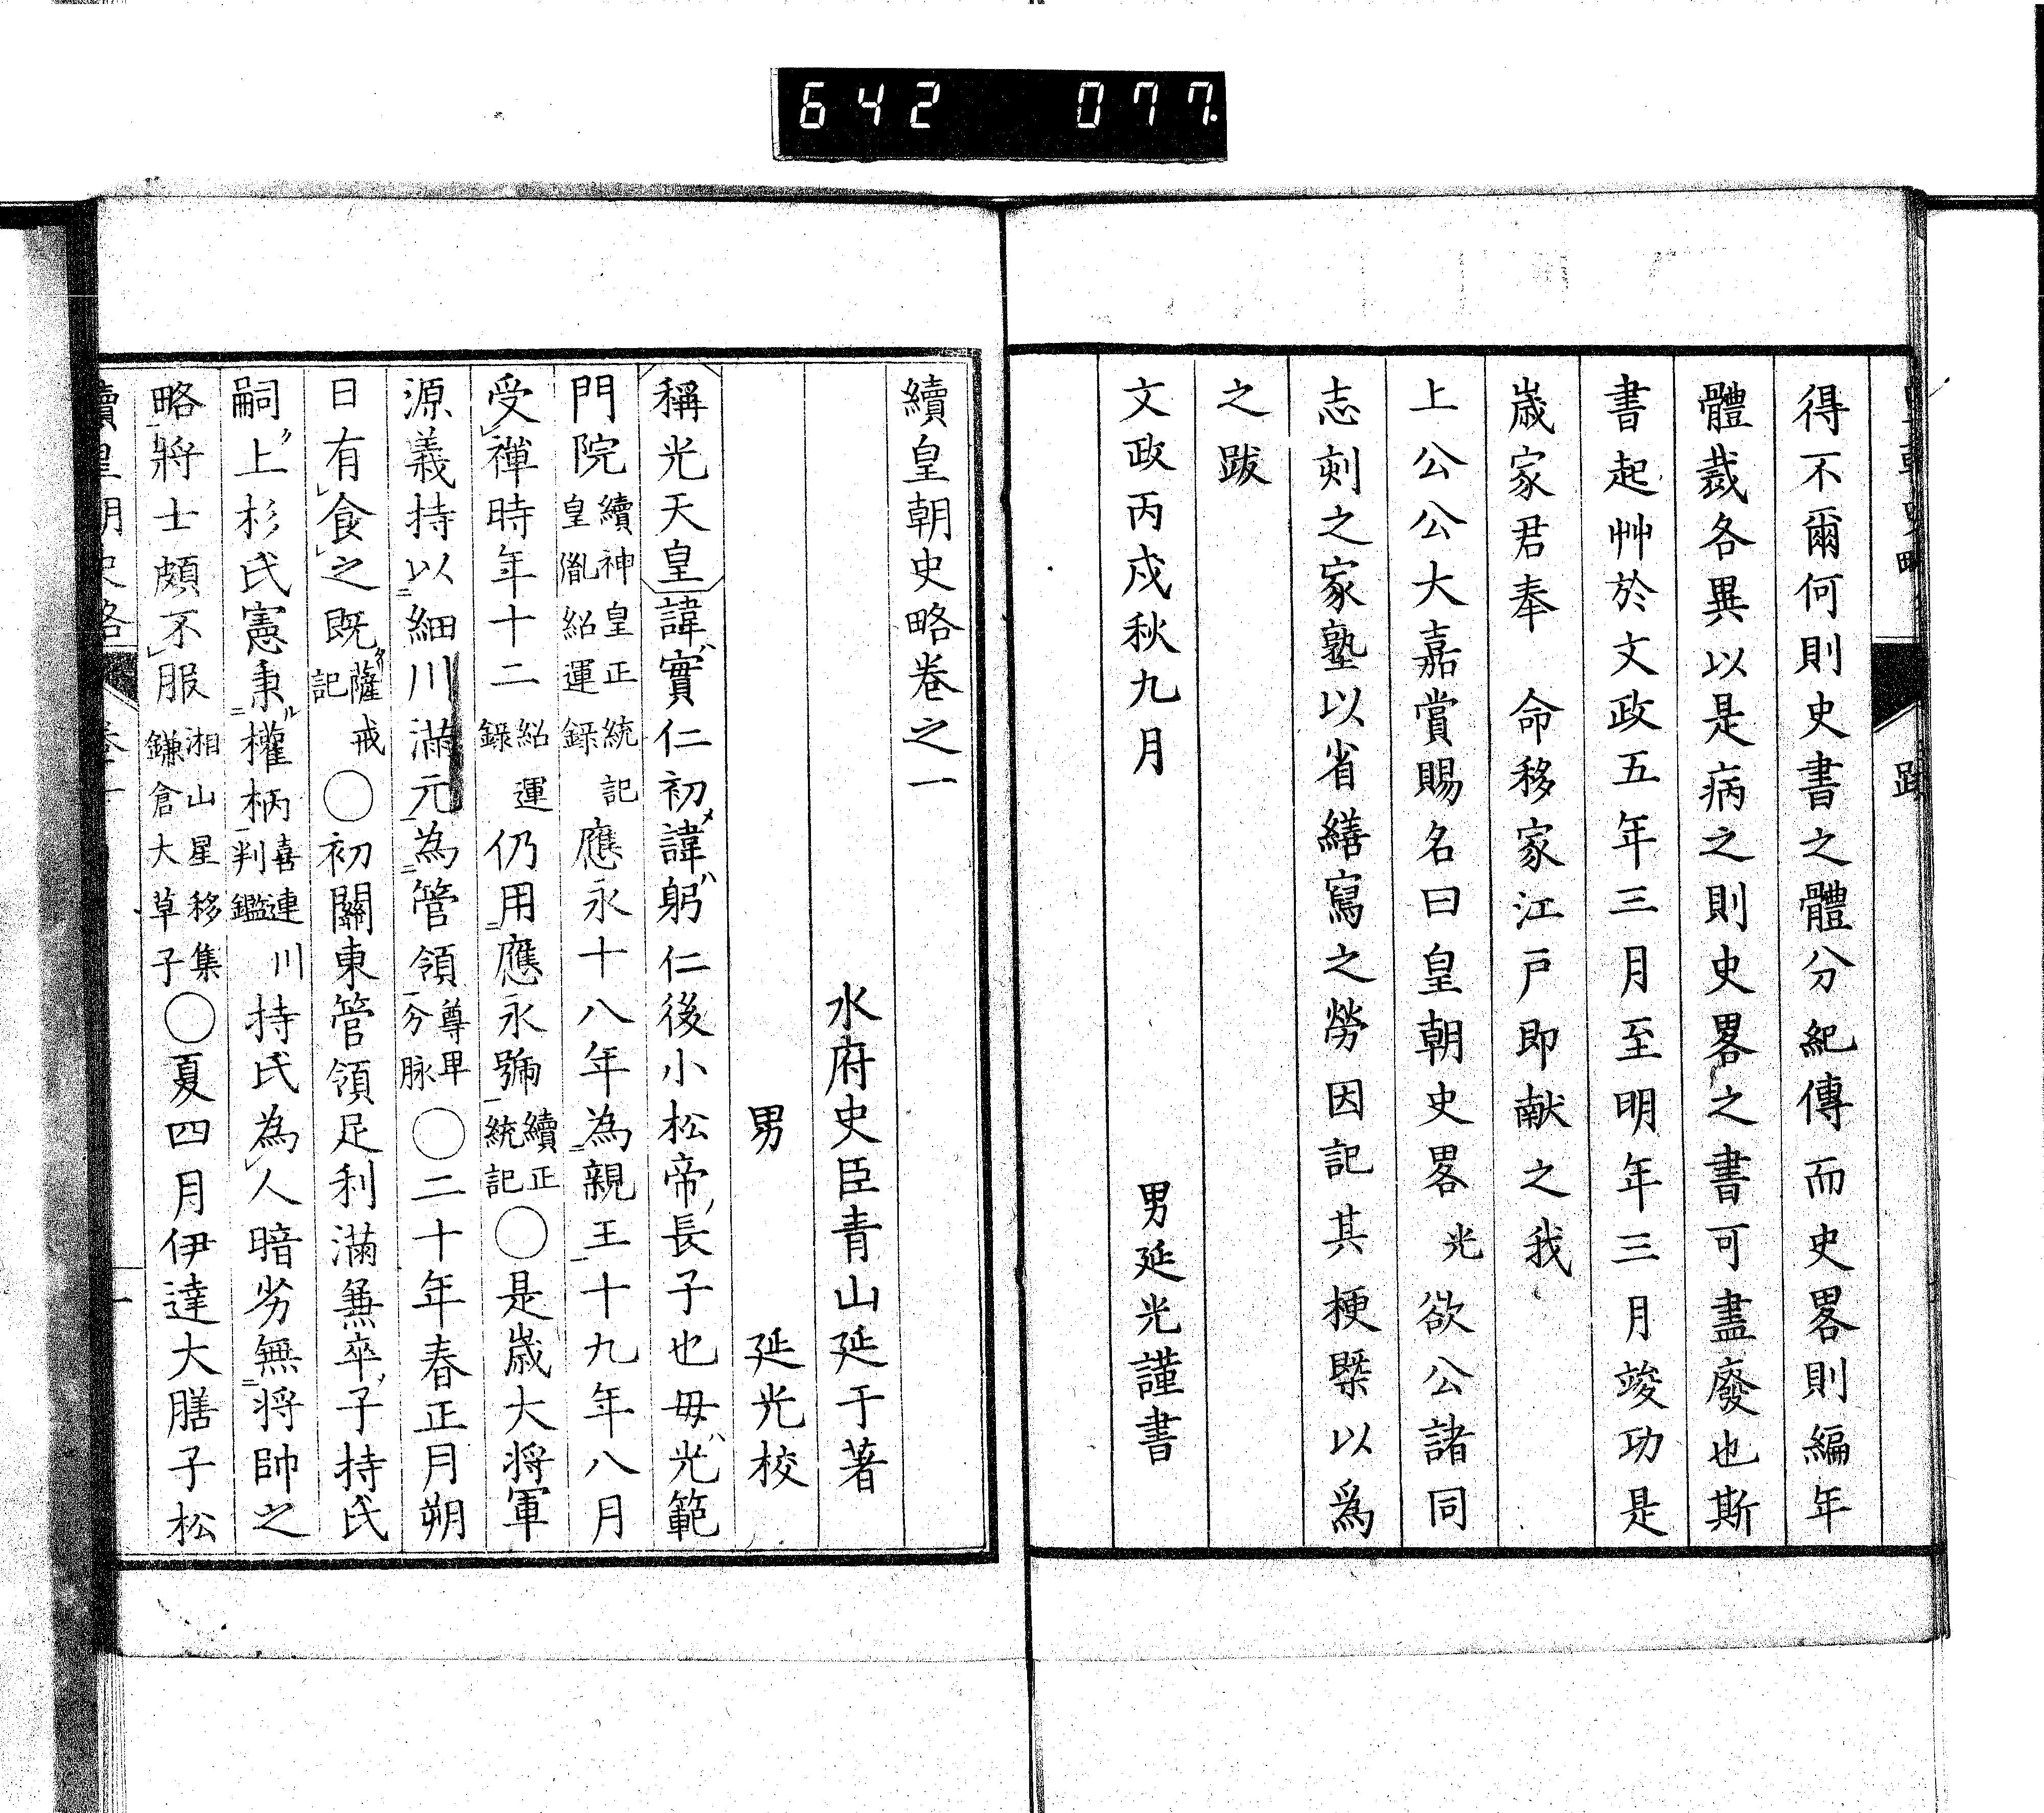 642 077
得不爾何則史書之體分紀傳而史畧則編年
體裁各異以是病之則史畧之書可盡廢也斯
書起艸於文政五年三月至明年三月竣功是
歳家君奉　命移家江戸即献之我
上公公大嘉賞賜名曰皇朝史畧光欲公諸同
志刻之家塾以省繕寫之勞因記其梗槩以爲
之跋
文政丙戌秋九月　男延光謹書
續皇朝史略卷之一
水府史臣青山延于著
男　延光校
稱光天皇諱實仁初諱躬仁後小松帝長子也毋光範
門院續神皇正統記皇胤紹運録應永十八年為親王十九年八月
受禪時年十二紹運録仍用應永號續正統記〇是歳大将軍
源義持以細川滿元為管領尊卑分脉〇二十年春正月朔
日有食之既薩戒記〇初關東管領足利滿兼卒子持氏
嗣上杉氏憲秉權柄喜連川判鑑持氏為人暗劣無将帥之
略將士頗不服湘山星移集鎌倉大草子〇夏四月伊達大膳子松